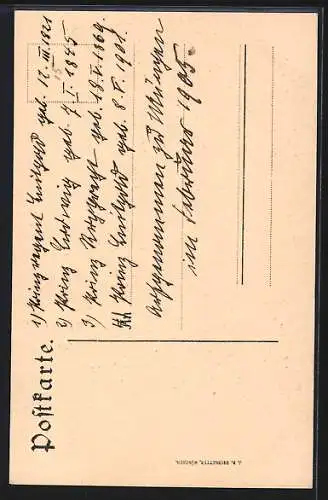 Postkarte.
1) Prinzregent Luitpold geb. 12. III. 1821
2) Prinz Ludwig geb. 7. I. 1845
3) Prinz Rupprecht geb. 18. V. 1869.
4) Prinz Luitpold geb. 8. V. 1901.
Aufgenommen zu München
im Februar 1905.